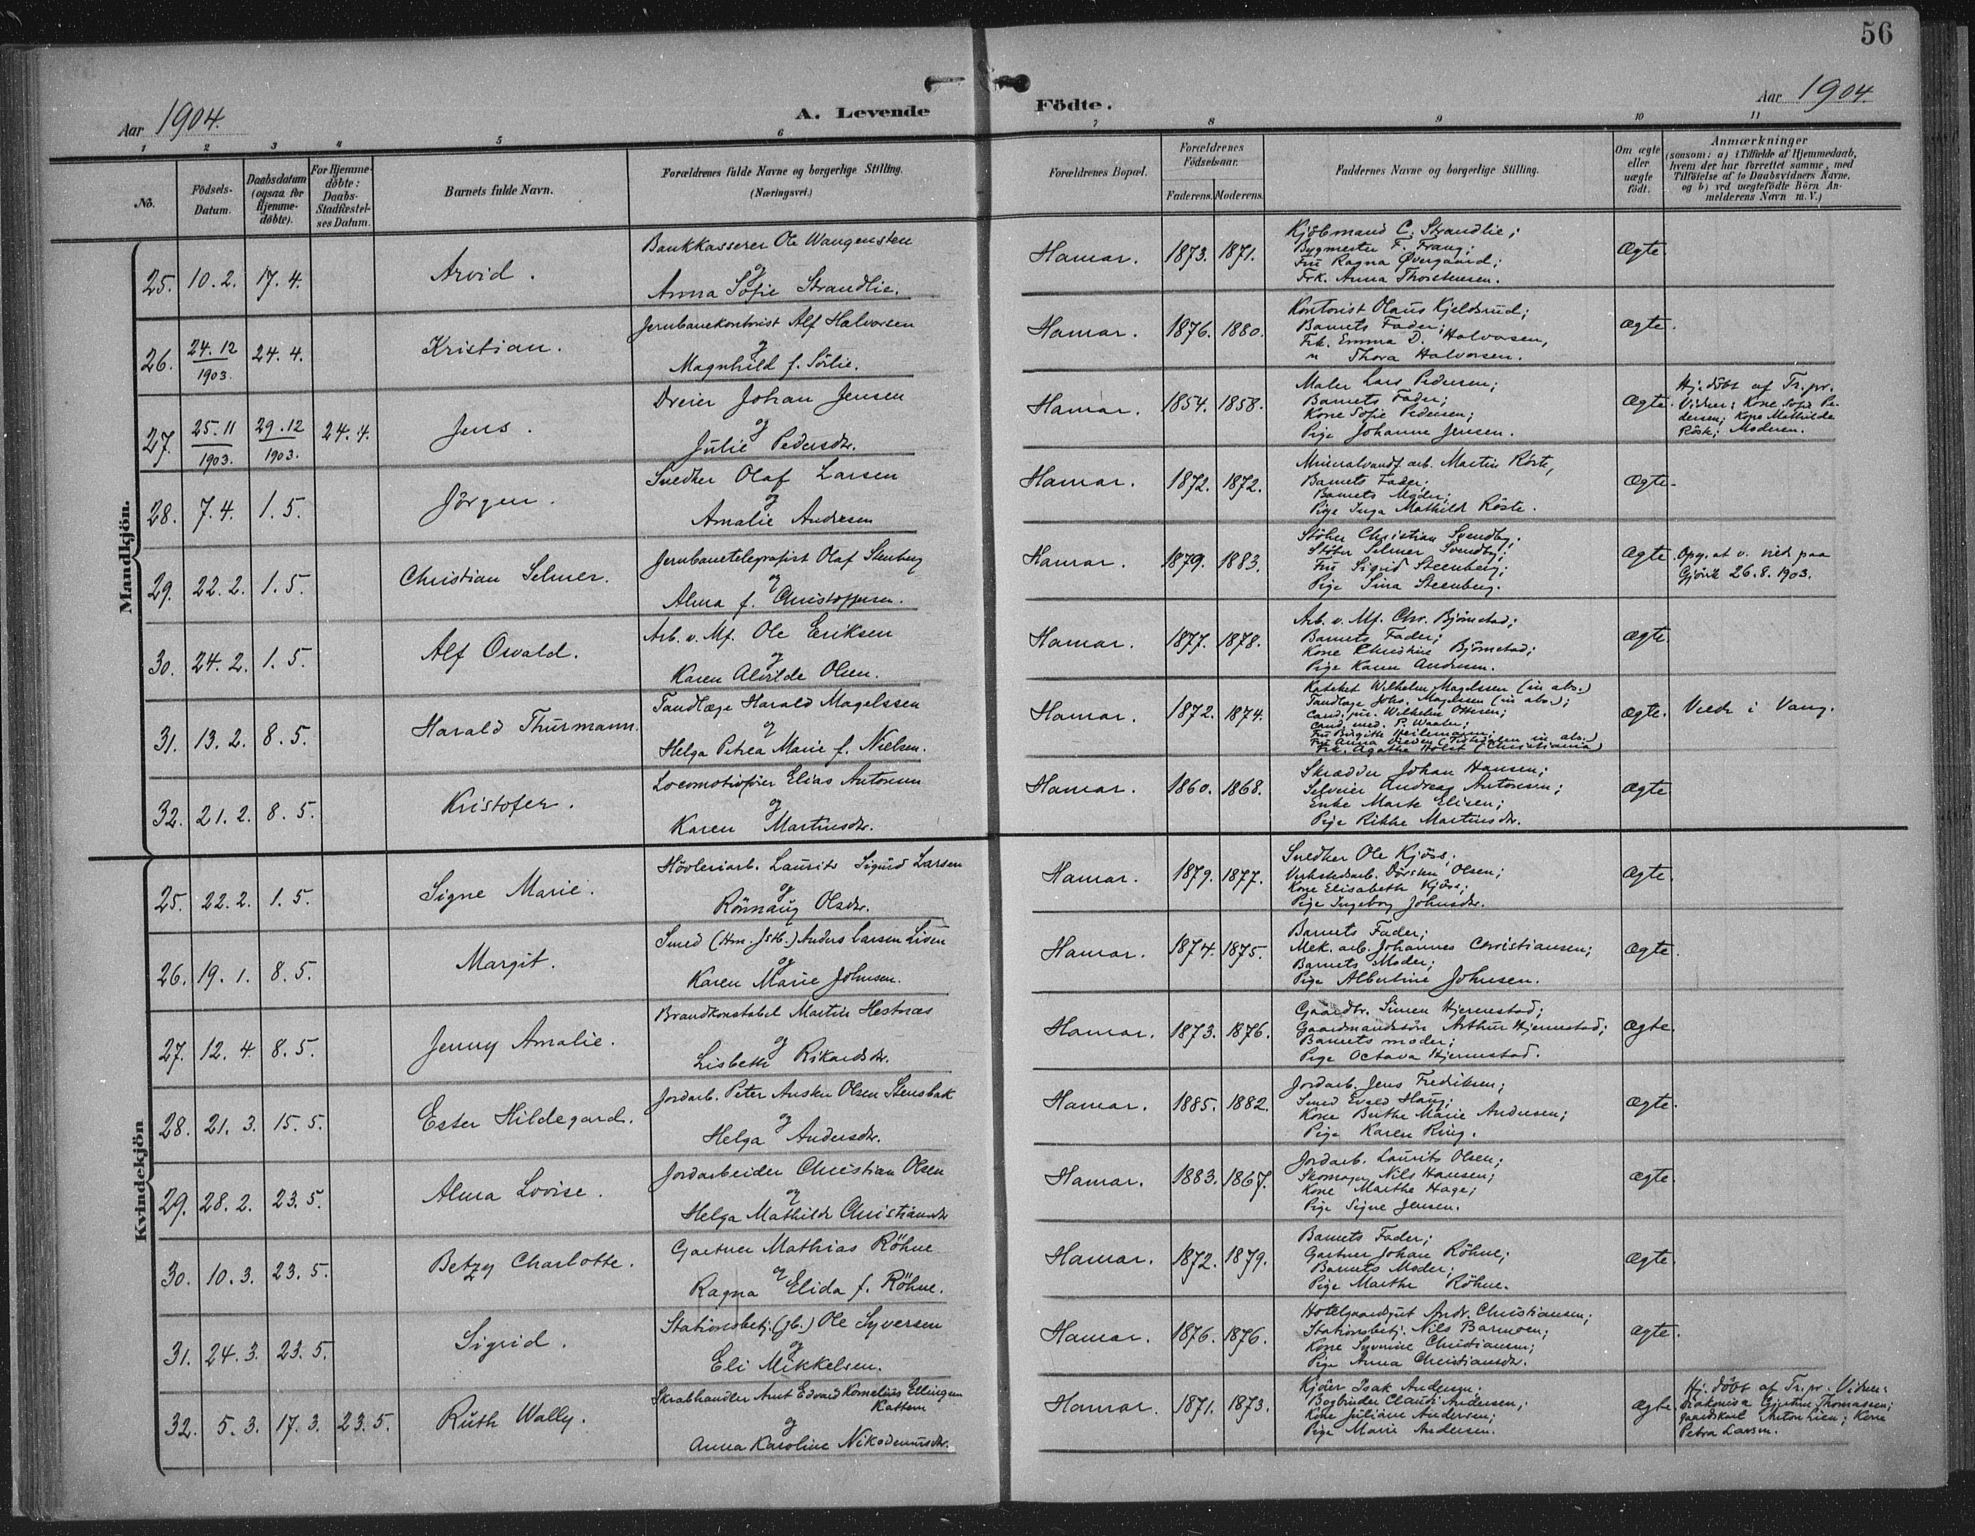 56
Aar 1904.
A. Levende
Födte.
Aar 1904.
1 2 3 4 5 6 7 8 9 10 11
No.
Födsels-Datum.
Daabsdatum (ogsaa for Hjemme-döbte).
For Hjemme-döbte: Daabs-Stadfæstel-ses Datum.
Barnets fulde Navn.
Forældrenes fulde Navne og borgerlige Stilling.
(Næringsvei.)
Forældrenes Bopæl.
Forældrenes Födselsaar.
Faderens. Moderens.
Faddernes Navne og borgerlige Stilling.
Om ægte eller uægte födt.
Anmærkninger
(saasom: a) i Tilfælde af Hjemmedaab,
hvem der har forrettet samme, med
Tilföielse af to Daabsvidners Navne,
og b) ved uægtefödte Börn An-
melderens Navn m. V.)
Mandkjön.
25. 10. 2. 17. 4. Arvid.
Bankkasserer Ole Wangensten
og
Anna Sofie Strandlie.
Hamar. 1873. 1871.
Kjöbmand C. Strandlie;
Bygmester F. Frang;
Fru Ragna Øvergaard;
Frk. Anna Thorstensen.
Ægte.
26. 24. 12 1903. 24. 4. Kristian.
Jernbanekontorist Alf Halvorsen
og
Magnhild f. Sörlie.
Hamar. 1876. 1880.
Kontorist Olaus Kjeldsrud;
Barnets Fader;
Frk. Emma D. Halvosen,
" Thora Halvorsen.
Ægte.
27. 25. 11 1903. 29. 12 1903. 24. 4. Jens.
Dreier Johan Jensen
og
Julie Pedersdr.
Hamar. 1854. 1858.
Maler Lars Pedersen;
Barnets Fader;
Kone Sofie Pedersen;
Pige Johanne Jensen.
Ægte.
Hj. döbt af Tr. pr.
Vidner: Kone Sofie Pe-
dersen; Kone Mathilde
Röste; Moderen.
28. 7. 4. 1. 5. Jörgen.
Snedker Olaf Larsen
og
Amalie Andresen
Hamar. 1872. 1872.
Mineralvandf. arb. Martin Röste,
Barnets Fader;
Barnets Moder;
Pige Inga Mathilde Röste.
Ægte.
29. 22. 2. 1. 5. Christian Selmer.
Jernbanetelegrafist Olaf Stenberg
og
Alma f. Christoffersen.
Hamar. 1879. 1883.
Støber Christian Svendby;
Støber Selmer Svendby;
Fru Sigrid Steenberg;
Pige Sina Steenberg.
Ægte.
Opg. at v. viet paa
Gjövik 26. 8. 1903.
30. 24. 2. 1. 5. Alf Osvald.
Arb. v. Mf. Ole Eriksen
og
Karen Alvilde Olsen.
Hamar. 1877. 1878.
Arb. v. Mf. Chr. Björnstad;
Barnets Fader;
Kone Christine Björnstad;
Pige Karen Andersen.
Ægte.
31. 13. 2. 8. 5. Harald Thurmann.
Tandlæge Harald Magelssen
og
Helga Petrea Marie f. Nielsen.
Hamar. 1872. 1874.
Kateket Wilhelm Magelssen (in abs.)
Tandlæge Johs. Magelssen (in abs.);
Cand. jur. Wilhelm Ottesen;
Cand. med. P. Waaler;
Fru Birgitte Heilemann;
Frk. Agathe Holst (Christiania)
Ægte.
Viede i Vang.
32. 21. 2. 8. 5. Kristofer.
Locomotivfører Elias Antonsen
og
Karen Martinsdr.
Hamar. 1860. 1868.
Skrædder Johan Hansen;
Selveier Andreas Antonsen;
Enke Marte Elisen;
Pige Rikke Martinsdr.
Ægte
Kvindekjön
25. 22. 2. 1. 5. Signe Marie.
Hövleriarb. Laurits Sigurd Larsen
og
Rönnaug Olsdr.
Hamar. 1879. 1877.
Snedker Ole Kjöss;
Verkstedsarb. Dörsten Olsen;
Kone Elisabeth Kjöss;
Pige Ingeborg Johnsdr.
Ægte.
26. 19. 1. 8. 5. Margit.
Smed (Hm. Jstb.) Anders Larsen Lisen
og
Karen Marie Johnsen.
Hamar. 1874. 1875.
Barnets Fader;
Mek. arb. Johannes Christiansen;
Barnets Moder;
Pige Albertine Johnsen.
Ægte.
27. 12. 4. 8. 5. Jenny Amalie.
Brandkonstabel Martin Hestnæs
og
Lisbeth Rikardsdr.
Hamar. 1873. 1876.
Gaardbr. Simen Hjemstad;
Gaardmandssön Arthur Hjemstad;
Barnets moder;
Pige Octava Hjemstad.
Ægte.
28. 21. 3. 15. 5. Ester Hildegard.
Jordarb. Peter Austen Olsen Stensbak
og
Helga Andersdr.
Hamar. 1885. 1882.
Jordarb. Jens Fredriksen;
Smed Evald Haug;
Kone Berthe Marie Andersen;
Pige Karen Ring.
Ægte.
29. 28. 2. 23. 5. Alma Lovise.
Jordarbeider Christian Olsen
og
Helga Mathilde Christiansdr
Hamar. 1883. 1867.
Jordarb. Laurits Olsen;
Skomager Nils Hansen;
Kone Marthe Hage;
Pige Signe Jensen.
Ægte.
30. 10. 3. 23. 5. Betzy Charlotte.
Gartner Mathias Röhne
og
Ragna Elida f. Röhne.
Hamar. 1872. 1879.
Barnets Fader;
Gartner Johan Röhne;
Barnets Moder;
Pige Marthe Röhne.
Ægte.
31. 24. 3. 23. 5. Sigrid.
Stationsbetj. (jb.) Ole Syversen
og
Eli Mikkelsen.
Hamar. 1876. 1876.
Hotelgaardsgut Andr. Christiansen;
Stationsbetj. Nils Barmoen;
Kone Syverine Christiansen;
Pige Anna Christiansdr.
Ægte.
32. 5. 3. 17. 3. 23. 5. Ruth Wally.
Skrabhandler Arnt Edvard Kornelius Ellingsen
Kattem
og
Anna Karoline Nikodemusdr.
Hamar. 1871. 1873.
Kjöer Isak Andersen;
Bogbinder Claus Andersen;
Kone Juliane Andersen;
Pige Marie Andersen.
Ægte.
Hj. döbt af Tr. pr. Vidner:
Diakonisse Gjertine Thomassen;
gaardskarl Anton Lien; Kone
Petra Larsen.